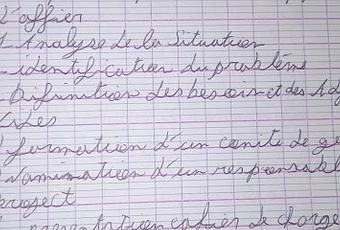 L'affier
1 Analyse de la situation
- identification du problème
- Difinition des besoin et des
formation d'un comité de
Naminatien d'un responsabl
project
presentation cahier de charge